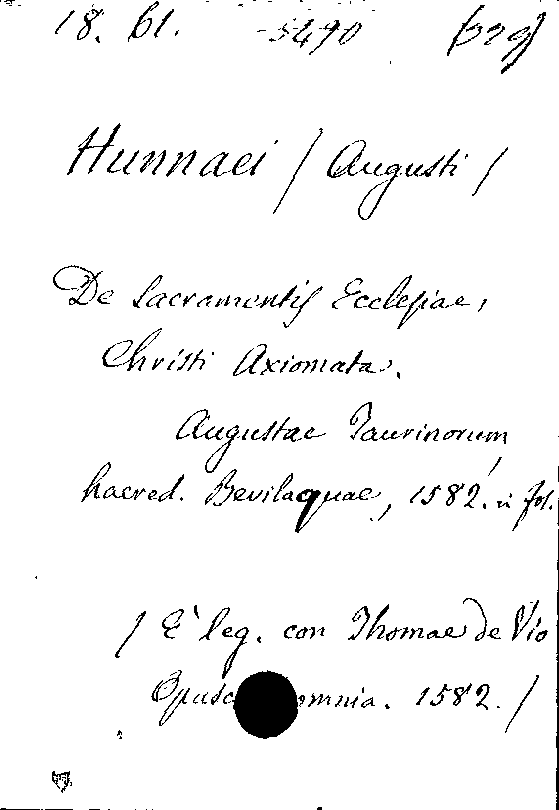 18. 61. 5490 (329)
Hunnaei / Augusti /
De Sacramentis Ecclesiae,
Christi Axiomata.
Augustae Taurinorum,
haered. Bevilaquae, 1582. in fol.
/ E' leg. con Thomae de Vio
Opusc omnia. 1582. /